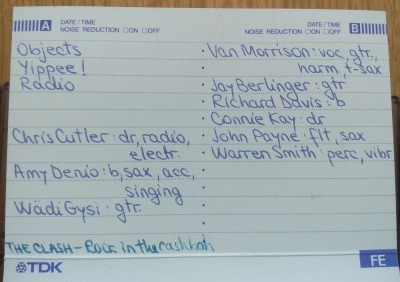 A DATE / TIME
NOISE REDUCTION ☐ON ☐OFF
DATE / TIME B
NOISE REDUCTION ☐ON ☐OFF
Objects
Yippee!
Radio
Chris Cutler: dr, radio,
electr.
Amy Denio: b, sax, acc,
singing
Wädi Gysi: gtr.
THE CLASH - Rock in the cashbah
Van Morrison: voc, gtr,
harm, t-sax
Jay Berlinger: gtr
Richard Davis: b
Connie Kay: dr
John Payne: flt, sax
Warren Smith: perc, vibr
TDK
FE